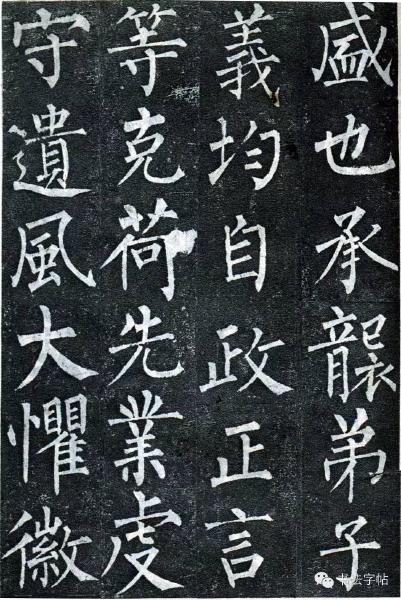 盛也承襲弟子
義均自政正言
等克荷先業虔
守遺風大懼徽
书法字帖